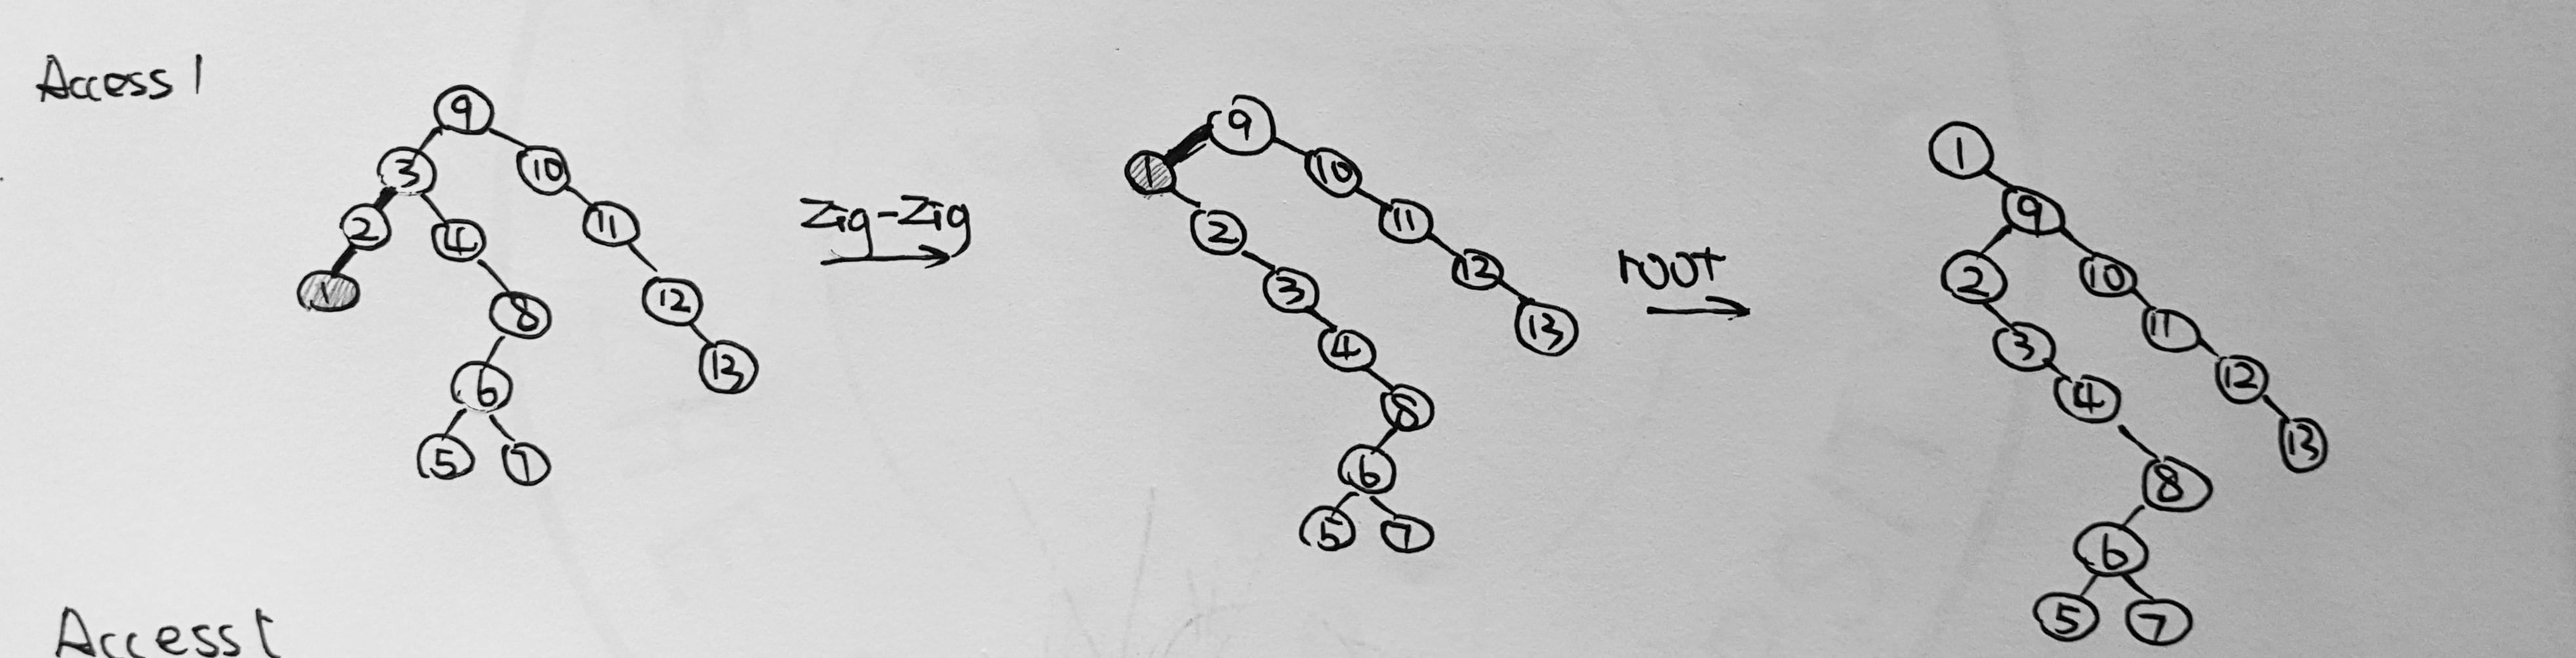 Access 1
9
3 10
2 4 11
1 8 12
6 13
5 7
Zig-Zig
9
1 10
2 11
3 12
4 13
8
6
5 7
root
1
9
2 10
3 11
4 12
8 13
6
5 7
Access